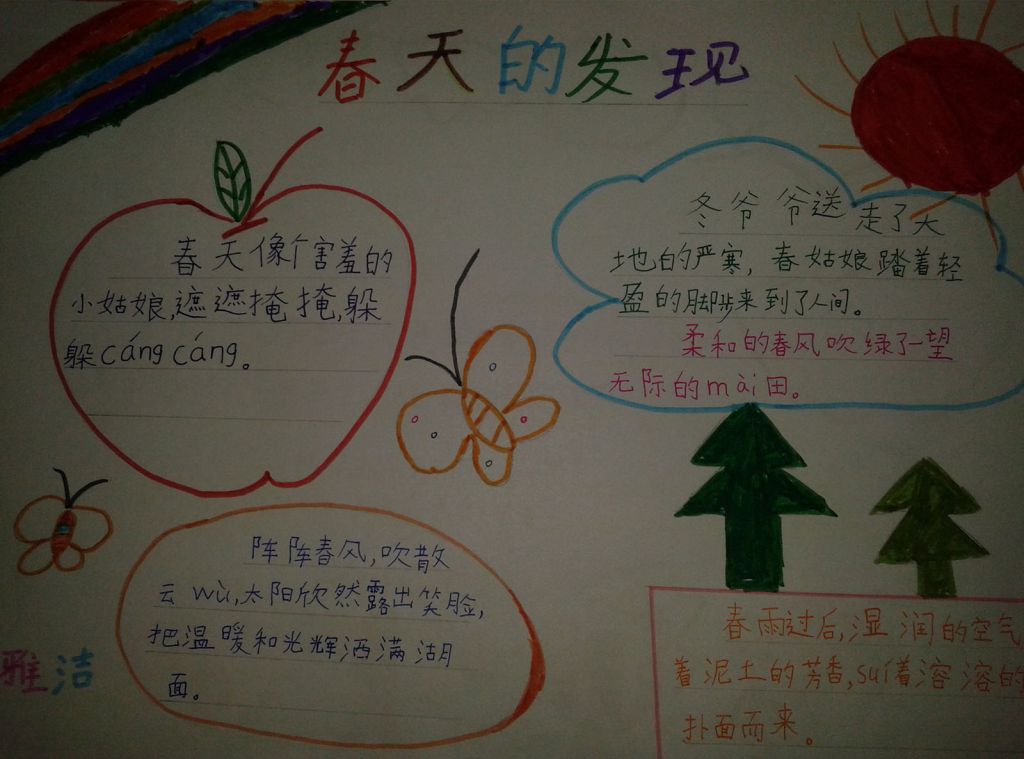 春天的发现
春天像个害羞的
小姑娘,遮遮掩掩,躲
躲cángcáng。
冬爷爷送走了大
地的严寒,春姑娘踏着轻
盈的脚步来到了人间。
柔和的春风吹绿了一望
无际的mài田。
阵阵春风,吹散
云wù,太阳欣然露出笑脸,
把温暖和光辉洒满湖
面。
雅洁
春雨过后,湿润的空气
着泥土的芳香,suí着溶溶的
扑面而来。